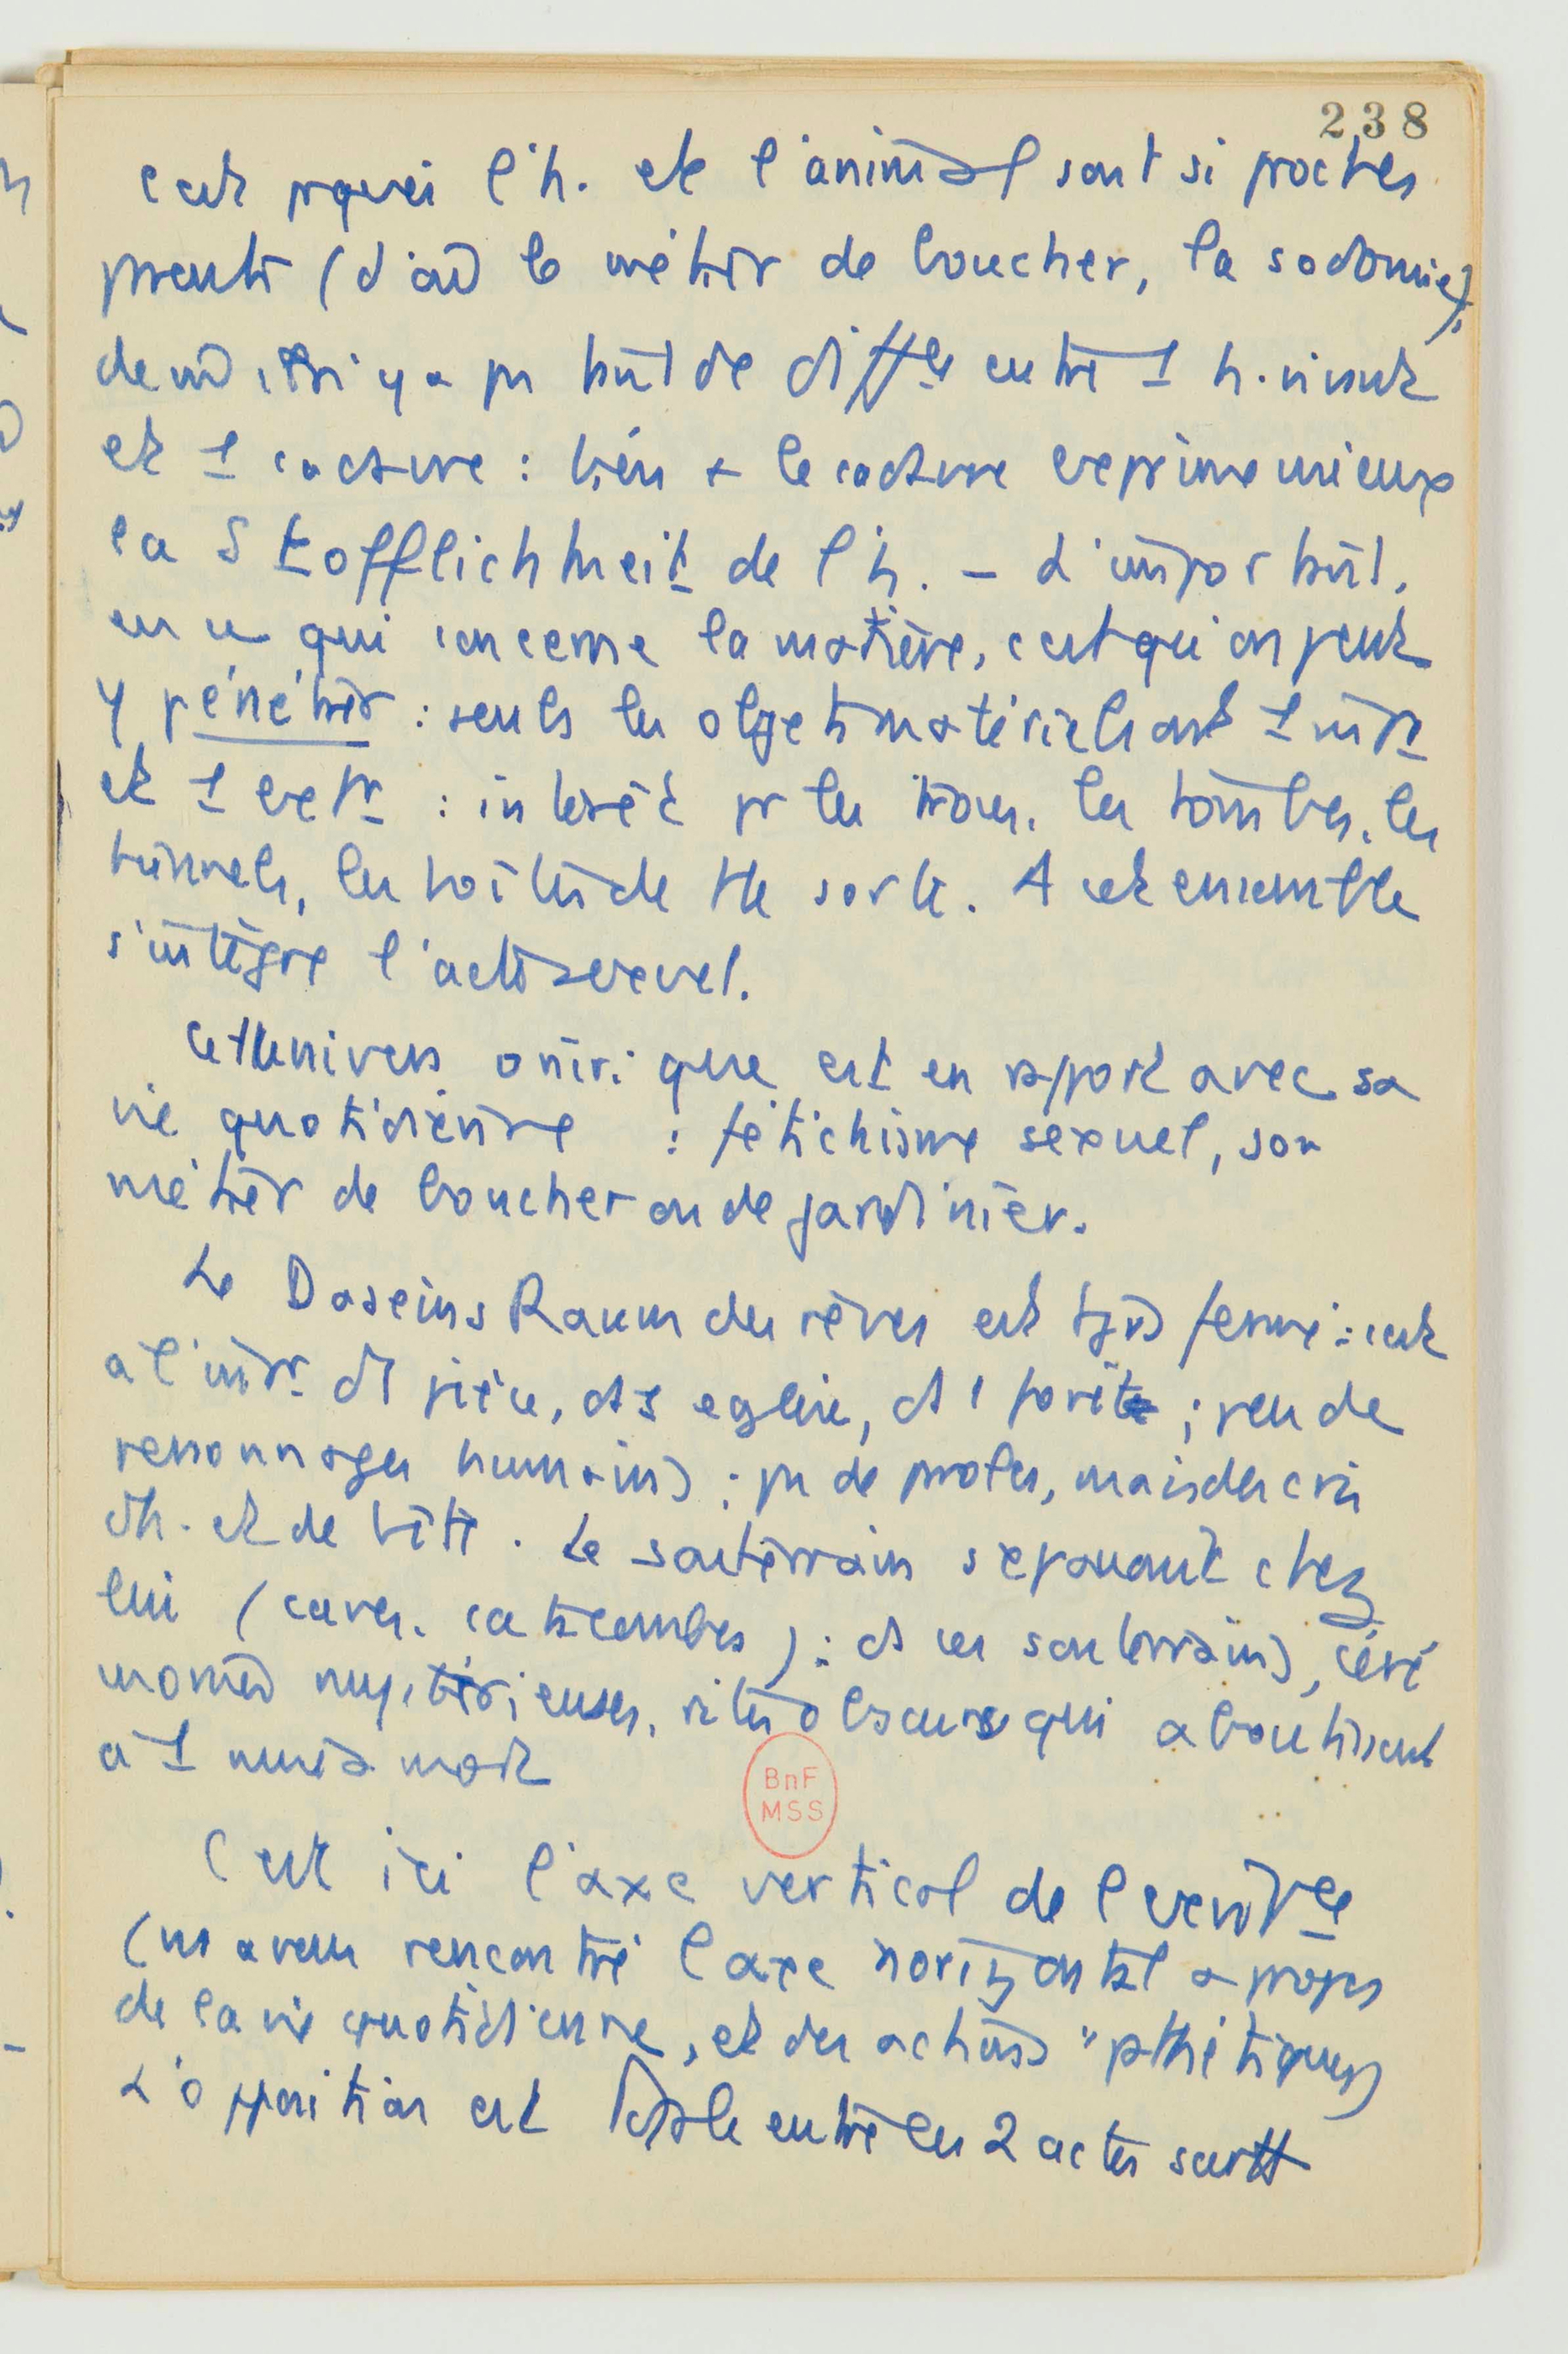 238
c'est pquoi l'h. et l'animal sont si proches
(d'où le métier de boucher, la sodomie).
de m y a pas tant de diffce entre 1 h. vivant
et 1 cadavre : bien + le cadavre exprime mieux
la Stofflichkeit de l'h. – L'important,
en ce qui concerne la matière, c'est qu'on peut
y pénétrer : seuls les objets matériels ont 1 intr
et 1 extr : intérêt pr les trous, les tombes, les
tunnels, les boîtes de tte sorte. A cet ensemble
s'intègre l'acte sexuel.
Cet univers onirique est en rapport avec sa
vie quotidienne : fétichisme sexuel, son
métier de boucher ou de jardinier.
Le Daseins Raum des rêves est tjrs fermé : c'est
à l'intr d'1 pièce, ds 1 église, ds 1 forêt ; peu de
personnages humains ; pas de paroles, mais des cris
d'h. et de bête. Le souterrain s'épanouit chez
lui (caves, catacombes) : ds ces souterrains, céré
monies mystérieuses, rites obscurs qui aboutissent
à 1 mise à mort
BnF
MSS
C'est ici l'axe vertical de l'existce
(ns avons rencontré l'axe horizontal à propos
de la vie quotidienne, et des actions "pathétiques)
L'opposition est totale entre les 2 actes surtt